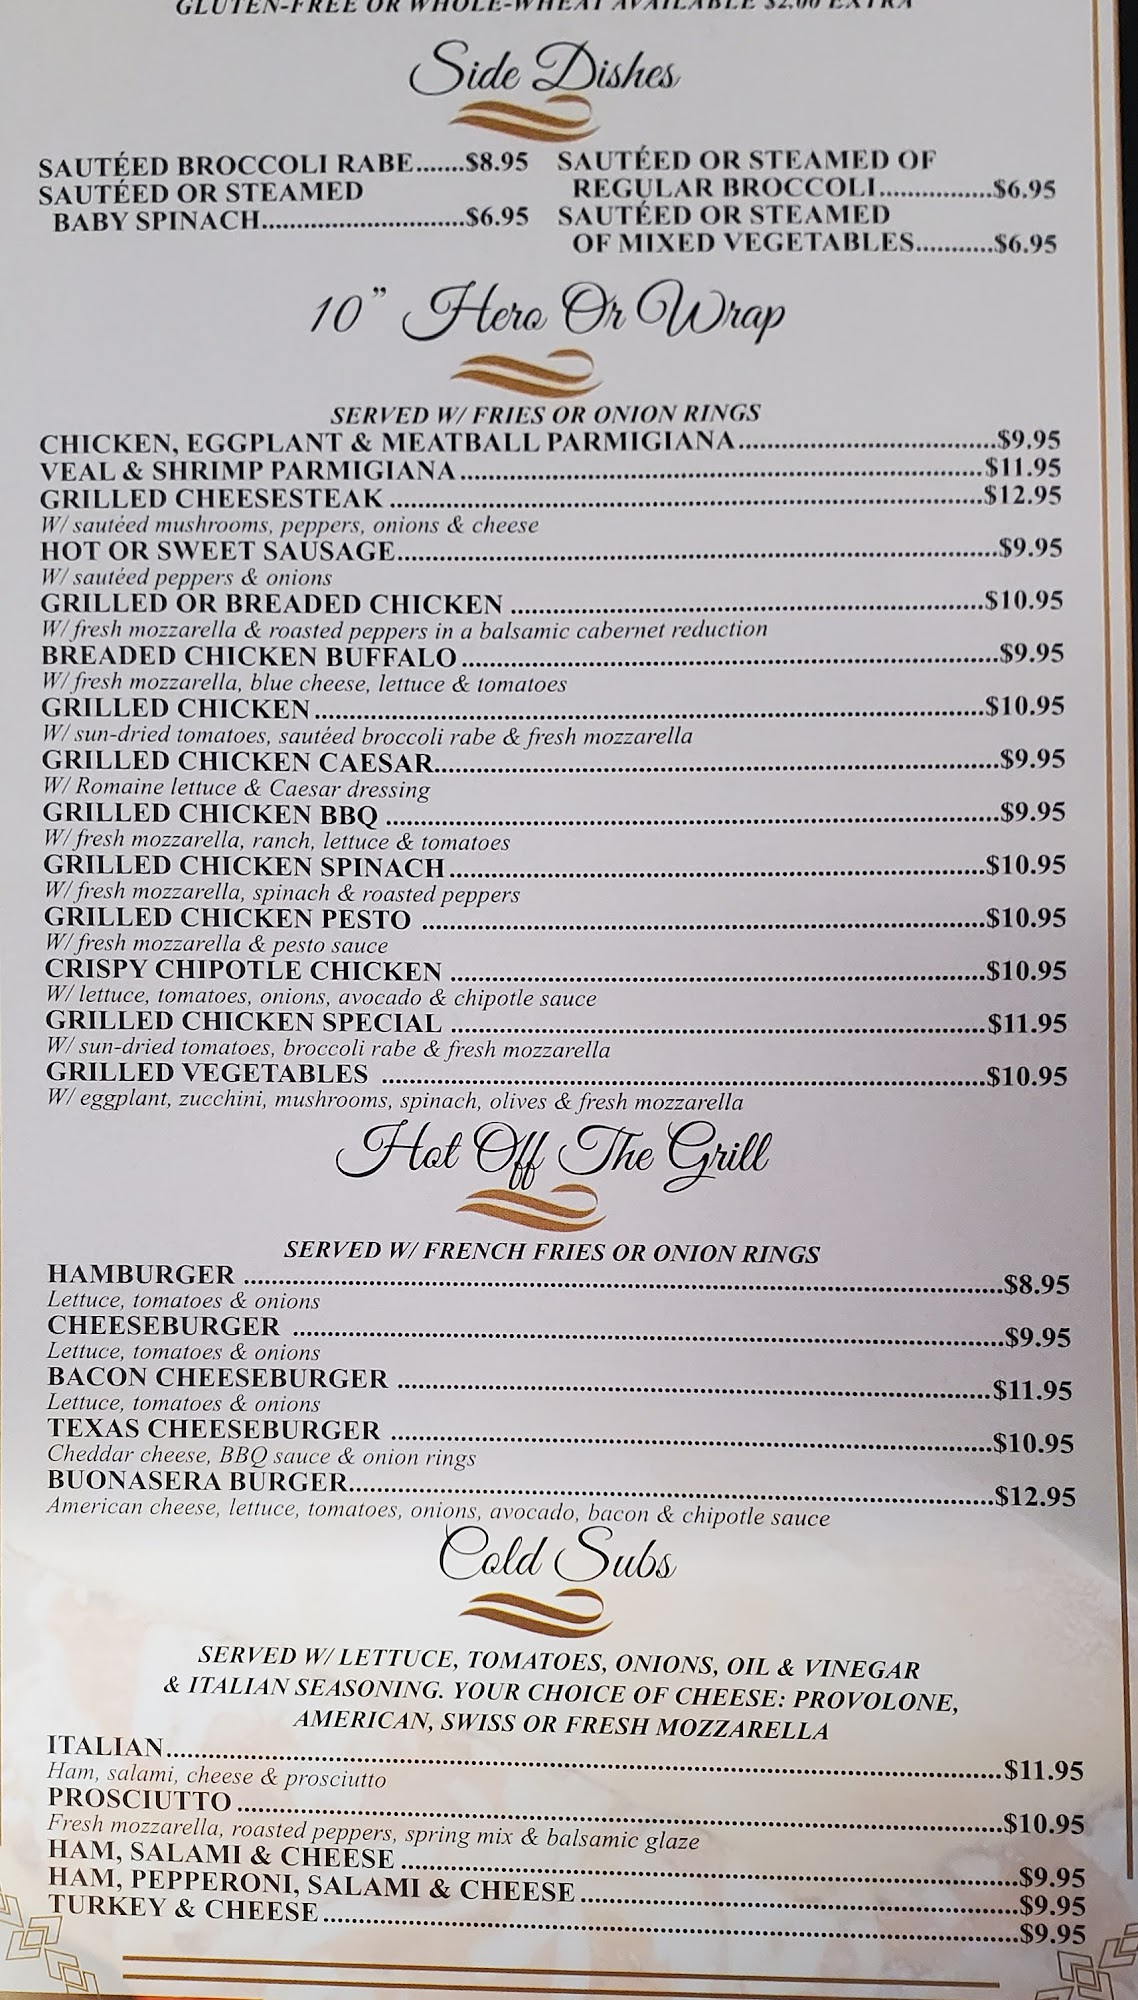 GLUTEN-FREE OR WHOLE-WHEAT AVAILABLE $2.00 EXTRA
Side Dishes
SAUTÉED BROCCOLI RABE.......$8.95
SAUTÉED OR STEAMED
BABY SPINACH............................$6.95
SAUTÉED OR STEAMED OF
REGULAR BROCCOLI................$6.95
SAUTÉED OR STEAMED
OF MIXED VEGETABLES...........$6.95
10" Hero Or Wrap
SERVED W/ FRIES OR ONION RINGS
CHICKEN, EGGPLANT & MEATBALL PARMIGIANA....................................$9.95
VEAL & SHRIMP PARMIGIANA..........................................................................$11.95
GRILLED CHEESESTEAK ....................................................................................$12.95
W/ sautéed mushrooms, peppers, onions & cheese
HOT OR SWEET SAUSAGE.....................................................................................$9.95
W/ sautéed peppers & onions
GRILLED OR BREADED CHICKEN ...................................................................$10.95
W/ fresh mozzarella & roasted peppers in a balsamic cabernet reduction
BREADED CHICKEN BUFFALO............................................................................$9.95
W/ fresh mozzarella, blue cheese, lettuce & tomatoes
GRILLED CHICKEN...............................................................................................$10.95
W/ sun-dried tomatoes, sautéed broccoli rabe & fresh mozzarella
GRILLED CHICKEN CAESAR................................................................................$9.95
W/ Romaine lettuce & Caesar dressing
GRILLED CHICKEN BBQ .......................................................................................$9.95
W/ fresh mozzarella, ranch, lettuce & tomatoes
GRILLED CHICKEN SPINACH............................................................................$10.95
W/ fresh mozzarella, spinach & roasted peppers
GRILLED CHICKEN PESTO ................................................................................$10.95
W/ fresh mozzarella & pesto sauce
CRISPY CHIPOTLE CHICKEN ............................................................................$10.95
W/ lettuce, tomatoes, onions, avocado & chipotle sauce
GRILLED CHICKEN SPECIAL ............................................................................$11.95
W/ sun-dried tomatoes, broccoli rabe & fresh mozzarella
GRILLED VEGETABLES ......................................................................................$10.95
W/ eggplant, zucchini, mushrooms, spinach, olives & fresh mozzarella
Hot Off The Grill
SERVED W/ FRENCH FRIES OR ONION RINGS
HAMBURGER ...........................................................................................................$8.95
Lettuce, tomatoes & onions
CHEESEBURGER ....................................................................................................$9.95
Lettuce, tomatoes & onions
BACON CHEESEBURGER ....................................................................................$11.95
Lettuce, tomatoes & onions
TEXAS CHEESEBURGER .....................................................................................$10.95
Cheddar cheese, BBQ sauce & onion rings
BUONASERA BURGER...........................................................................................$12.95
American cheese, lettuce, tomatoes, onions, avocado, bacon & chipotle sauce
Cold Subs
SERVED W/ LETTUCE, TOMATOES, ONIONS, OIL & VINEGAR
& ITALIAN SEASONING. YOUR CHOICE OF CHEESE: PROVOLONE,
AMERICAN, SWISS OR FRESH MOZZARELLA
ITALIAN.....................................................................................................................$11.95
Ham, salami, cheese & prosciutto
PROSCIUTTO............................................................................................................$10.95
Fresh mozzarella, roasted peppers, spring mix & balsamic glaze
HAM, SALAMI & CHEESE.......................................................................................$9.95
HAM, PEPPERONI, SALAMI & CHEESE..............................................................$9.95
TURKEY & CHEESE...................................................................................................$9.95